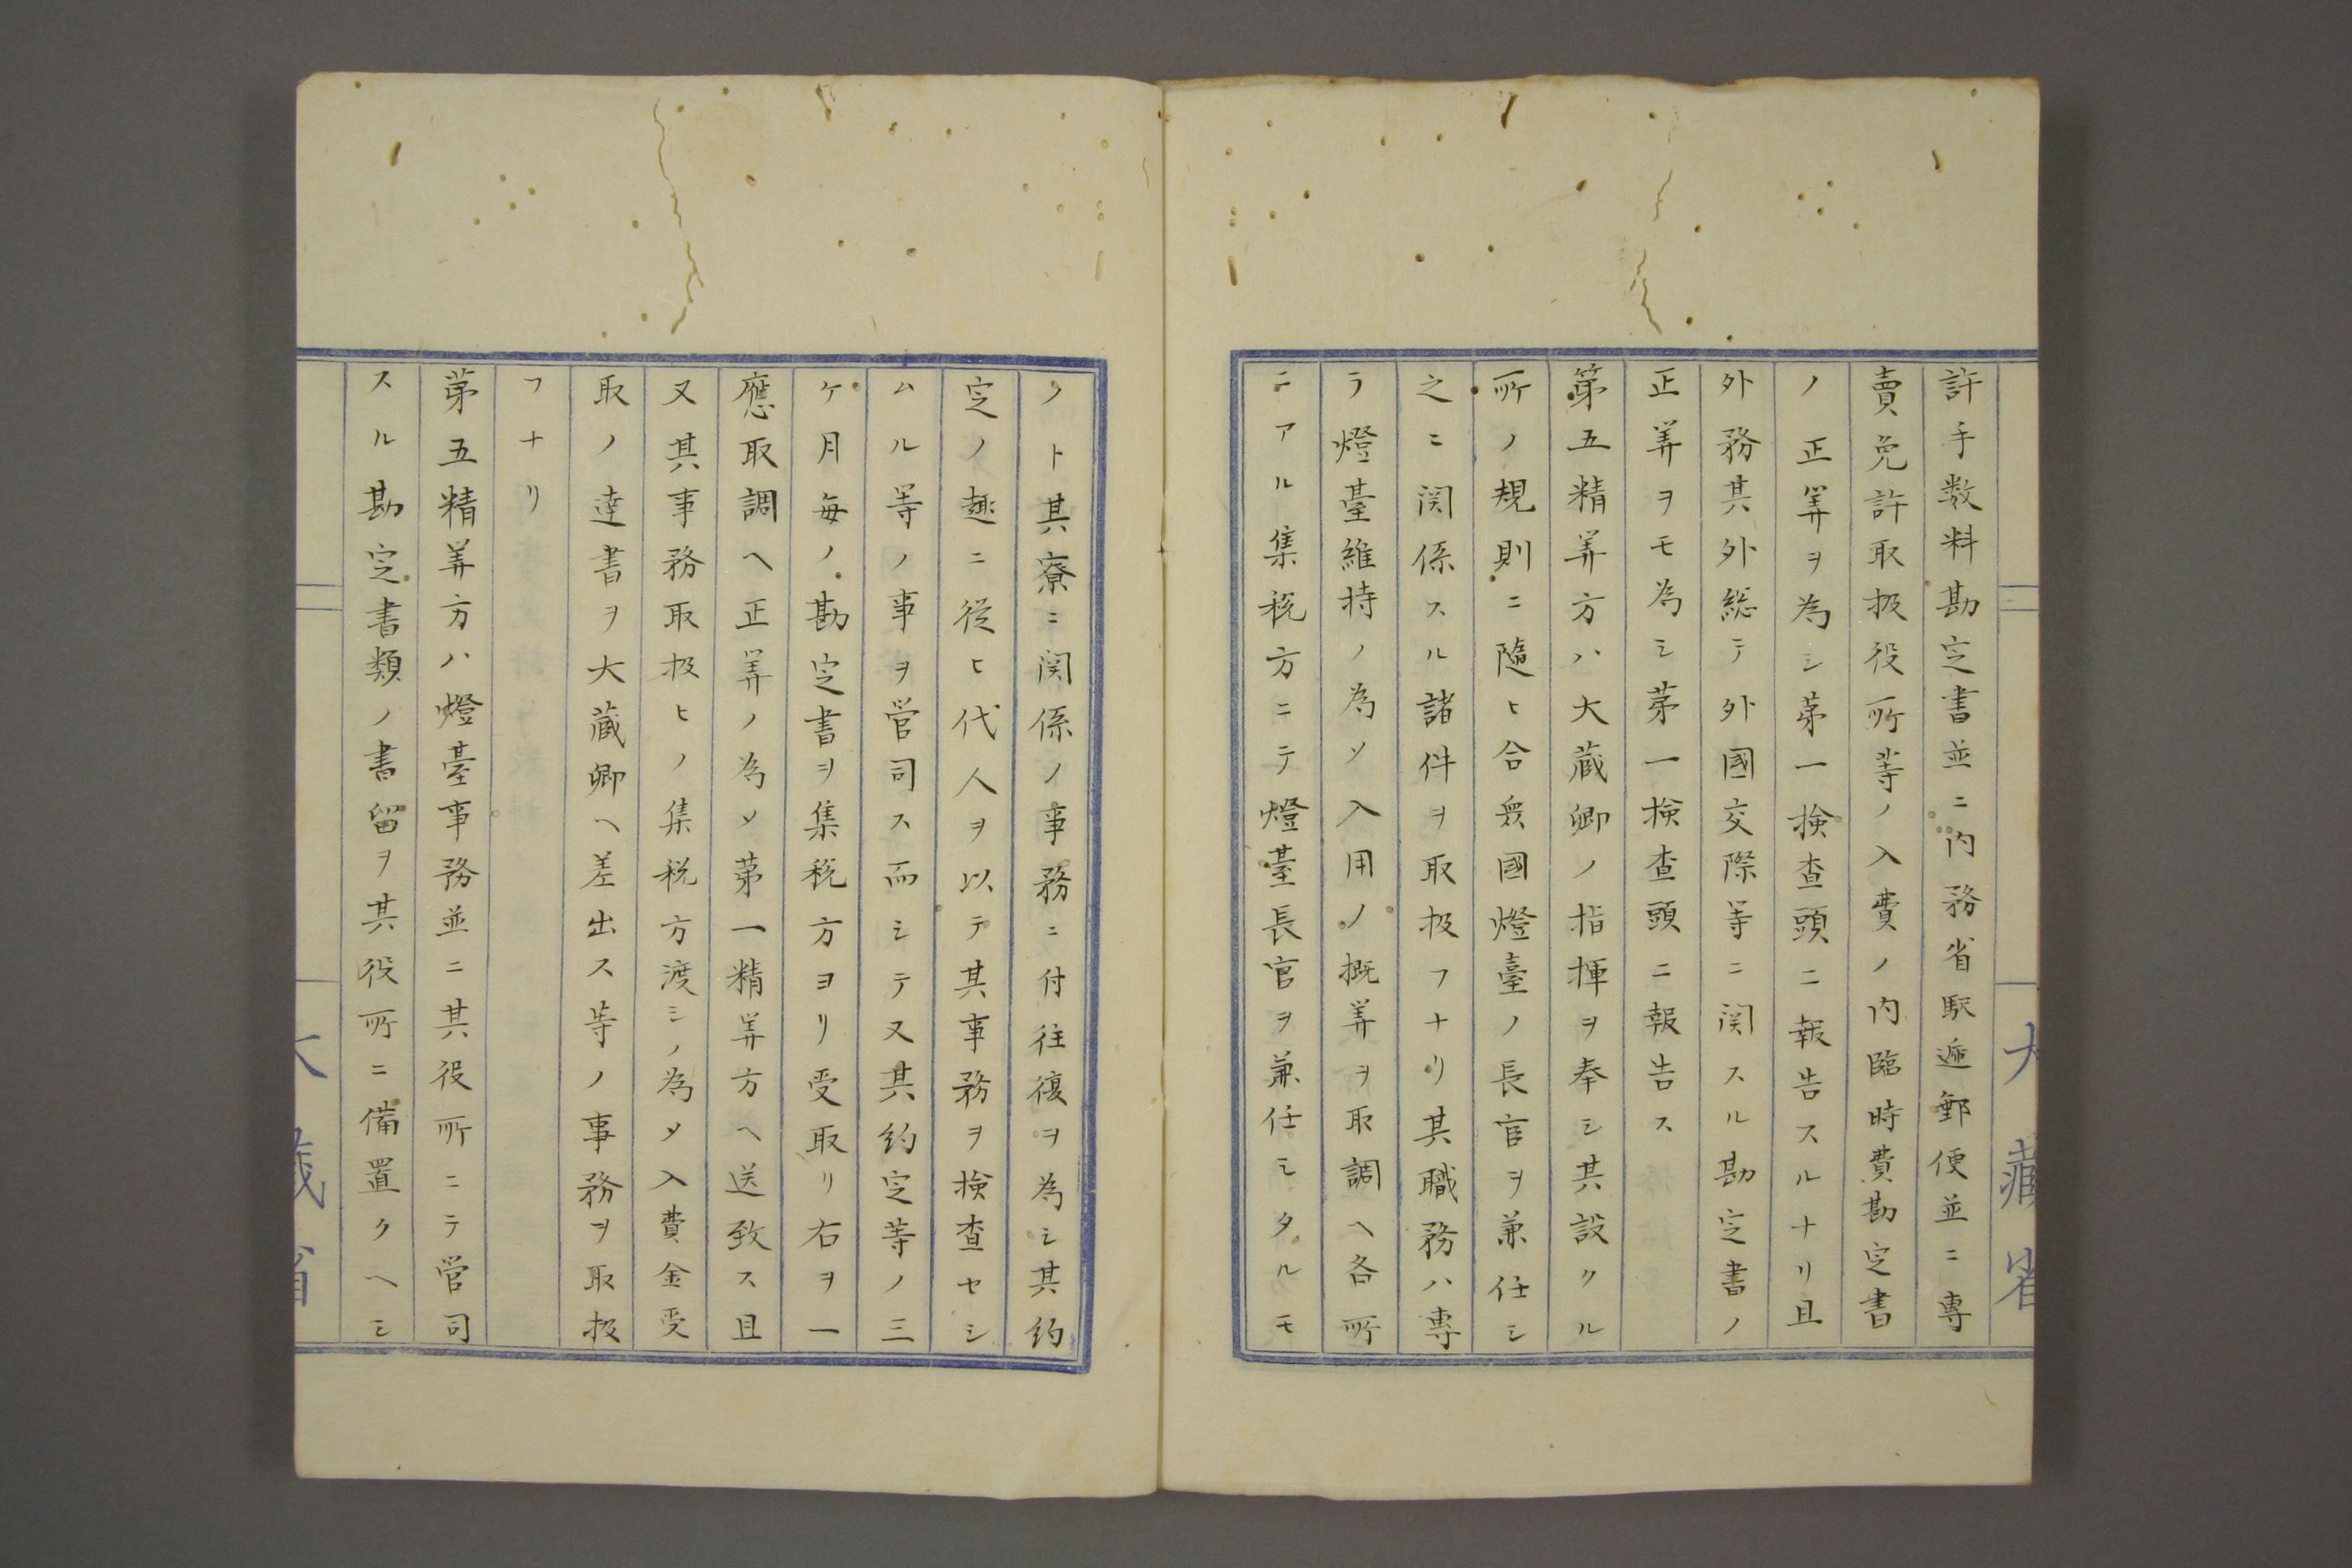 許手数料勘定書並ニ内務省駅逓郵便並ニ專
賣免許取扱役所等ノ入費ノ内臨時費勘定書
ノ正筭ヲ為シ苐一検查頭ニ報告スルナリ且
外務其外総テ外國交際等ニ関スル勘定書ノ
正筭ヲモ為シ苐一検查頭ニ報告ス
第五精筭方ハ大蔵卿ノ指揮ヲ奉シ其設クル
所ノ規則ニ隨ヒ合衆國燈臺ノ長官ヲ兼任シ
之ニ関係スル諸件ヲ取扱フナリ其職務ハ專
ラ燈臺維持ノ為メ入用ノ概筭ヲ取調ヘ各所
ニアル集税方ニテ燈臺長官ヲ兼任シタルモ
大藏省
ノト其寮ニ関係ノ事務ニ付往復ヲ為シ其約
定ノ趣ニ從ヒ代人ヲ以テ其事務ヲ検查セシ
ムル等ノ事ヲ管司ス而シテ又其約定等ノ三
ケ月毎ノ勘定書ヲ集税方ヨリ受取リ右ヲ一
應取調ヘ正筭ノ為メ苐一精筭方ヘ送致ス且
又其事務取扱ヒノ集税方渡シノ為メ入費金受
取ノ達書ヲ大蔵卿ヘ差出ス等ノ事務ヲ取扱
フナリ
苐五精筭方ハ燈臺事務並ニ其役所ニテ管司
スル勘定書類ノ書留ヲ其役所ニ備置クヘシ
大藏省